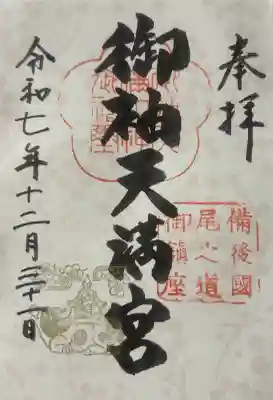 奉拝
御袖天満宮
備後國
尾之道
御鎮座
令和七年十二月三十一日